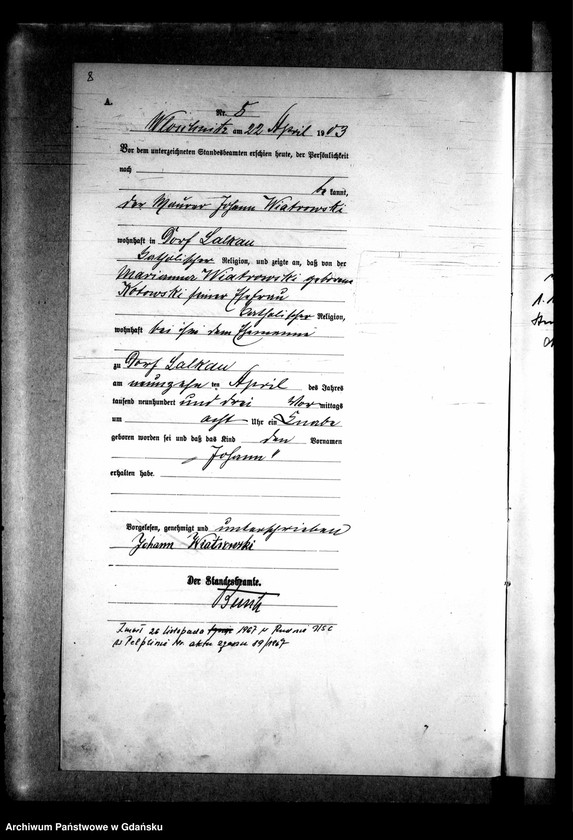 8
A.
Nr. 5
am 22 April 1903
Vor dem unterzeichneten Standesbeamten erschien heute, der Persönlichkeit
nach
be kannt,
der Maurer Johann Wiatrowski
wohnhaft in Dorf Lalkau
katholischer Religion, und zeigte an, daß von der
Marianna Wiatrowski geborene
Kotowski seiner Ehefrau
katholischer Religion,
wohnhaft bei dem Ehemanne
zu Dorf Lalkau
am neunzehn ten April des Jahres
tausend neunhundert und drei Vor mittags
um acht Uhr ein Knabe
geboren worden sei und daß das Kind den Vornamen
„Johann“
erhalten habe.
Vorgelesen, genehmigt und unterschrieben
Johann Wiatrowski
Der Standesbeamte.
Zmarł 26 listopada 1967 w Rudnie USC
w Pelplinie Nr. aktu zgonu 89/1967
Archiwum Państwowe w Gdańsku